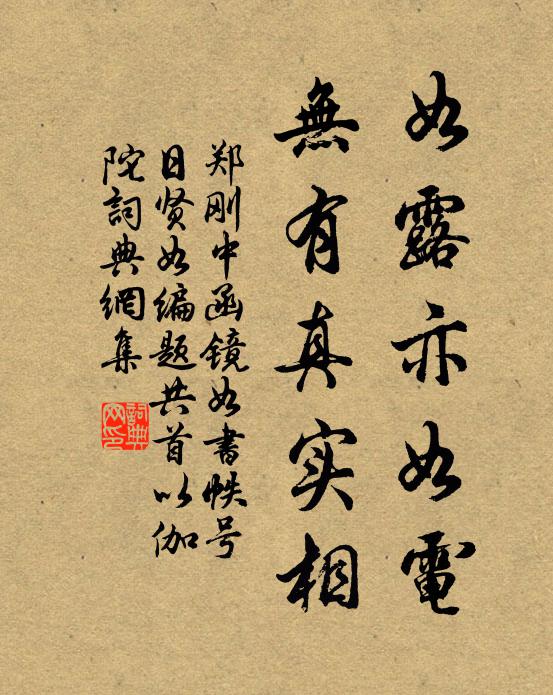 如露亦如電
無有真实相
郑刚中函镜如書帙号
日贤如编题共首以伽
陀詞典網集
詞典网印